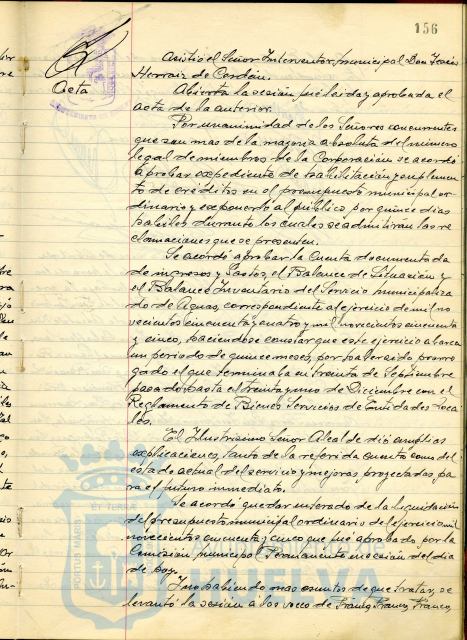 156
Acta
Asistió el Señor Interventor municipal Don Jesús
Herraiz de Cerdán.
Abierta la sesión fué leida y aprobada el
acta de la anterior.
Por unanimidad de los Señores concurrentes
que son mas de la mayoría absoluta del número
legal de miembros de la Corporación se acordó
aprobar expediente de habilitación y suplemen-
to de créditos en el presupuesto municipal or-
dinario y exponerlo al público por quince dias
habiles durante los cuales se admitiran las re-
clamaciones que se presenten.
Se acordó aprobar la Cuenta documentada
de ingresos y Gastos, el Balance de Situación y
el Balance Inventario del Servicio municipaliza-
do de Aguas, correspondiente al ejercicio de mil no-
vecientos cincuenta y cuatro y mil novecientos cincuenta
y cinco, haciendose constar que este ejercicio abarca
un periodo de quince meses, por haber sido prorro-
gado el que terminaba en treinta de Septiembre
pasado hasta el treinta y uno de Diciembre con el
Reglamento de Bienes Servicios de Entidades Loca-
les.
El Ilustrisimo Señor Alcalde dió amplias
explicaciones, tanto de la referida cuenta como del
estado actual del servicio y mejoras proyectadas pa-
ra el futuro inmediato.
Se acordó quedar enterado de la liquidación
del presupuesto municipal ordinario del ejercicio mil
novecientos cincuenta y cinco que fué aprobado por la
Comisión municipal Permanente en sesión del dia
de hoy.
Y no habiendo mas asuntos de que tratar, se
levantó la sesión a los voces de Franco, Franco, Franco,
ET TERRAE
PORTUS MARIS
HUELVA